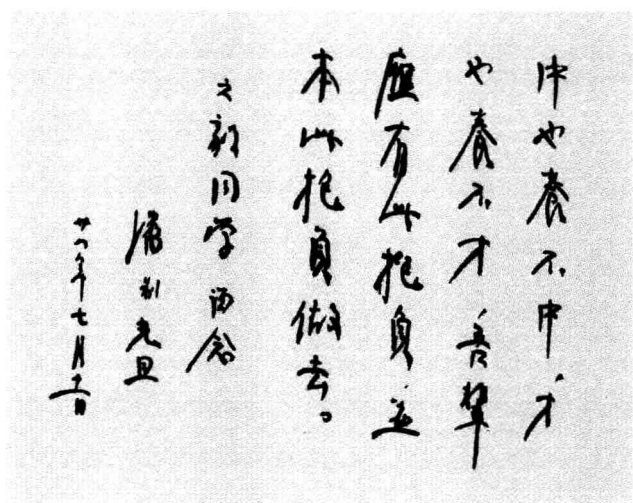 中也養不中才
也養不才吾輩
應有此抱負並
本此抱負做去。
文朝同学留念
潘光旦
廿六年七月十一日